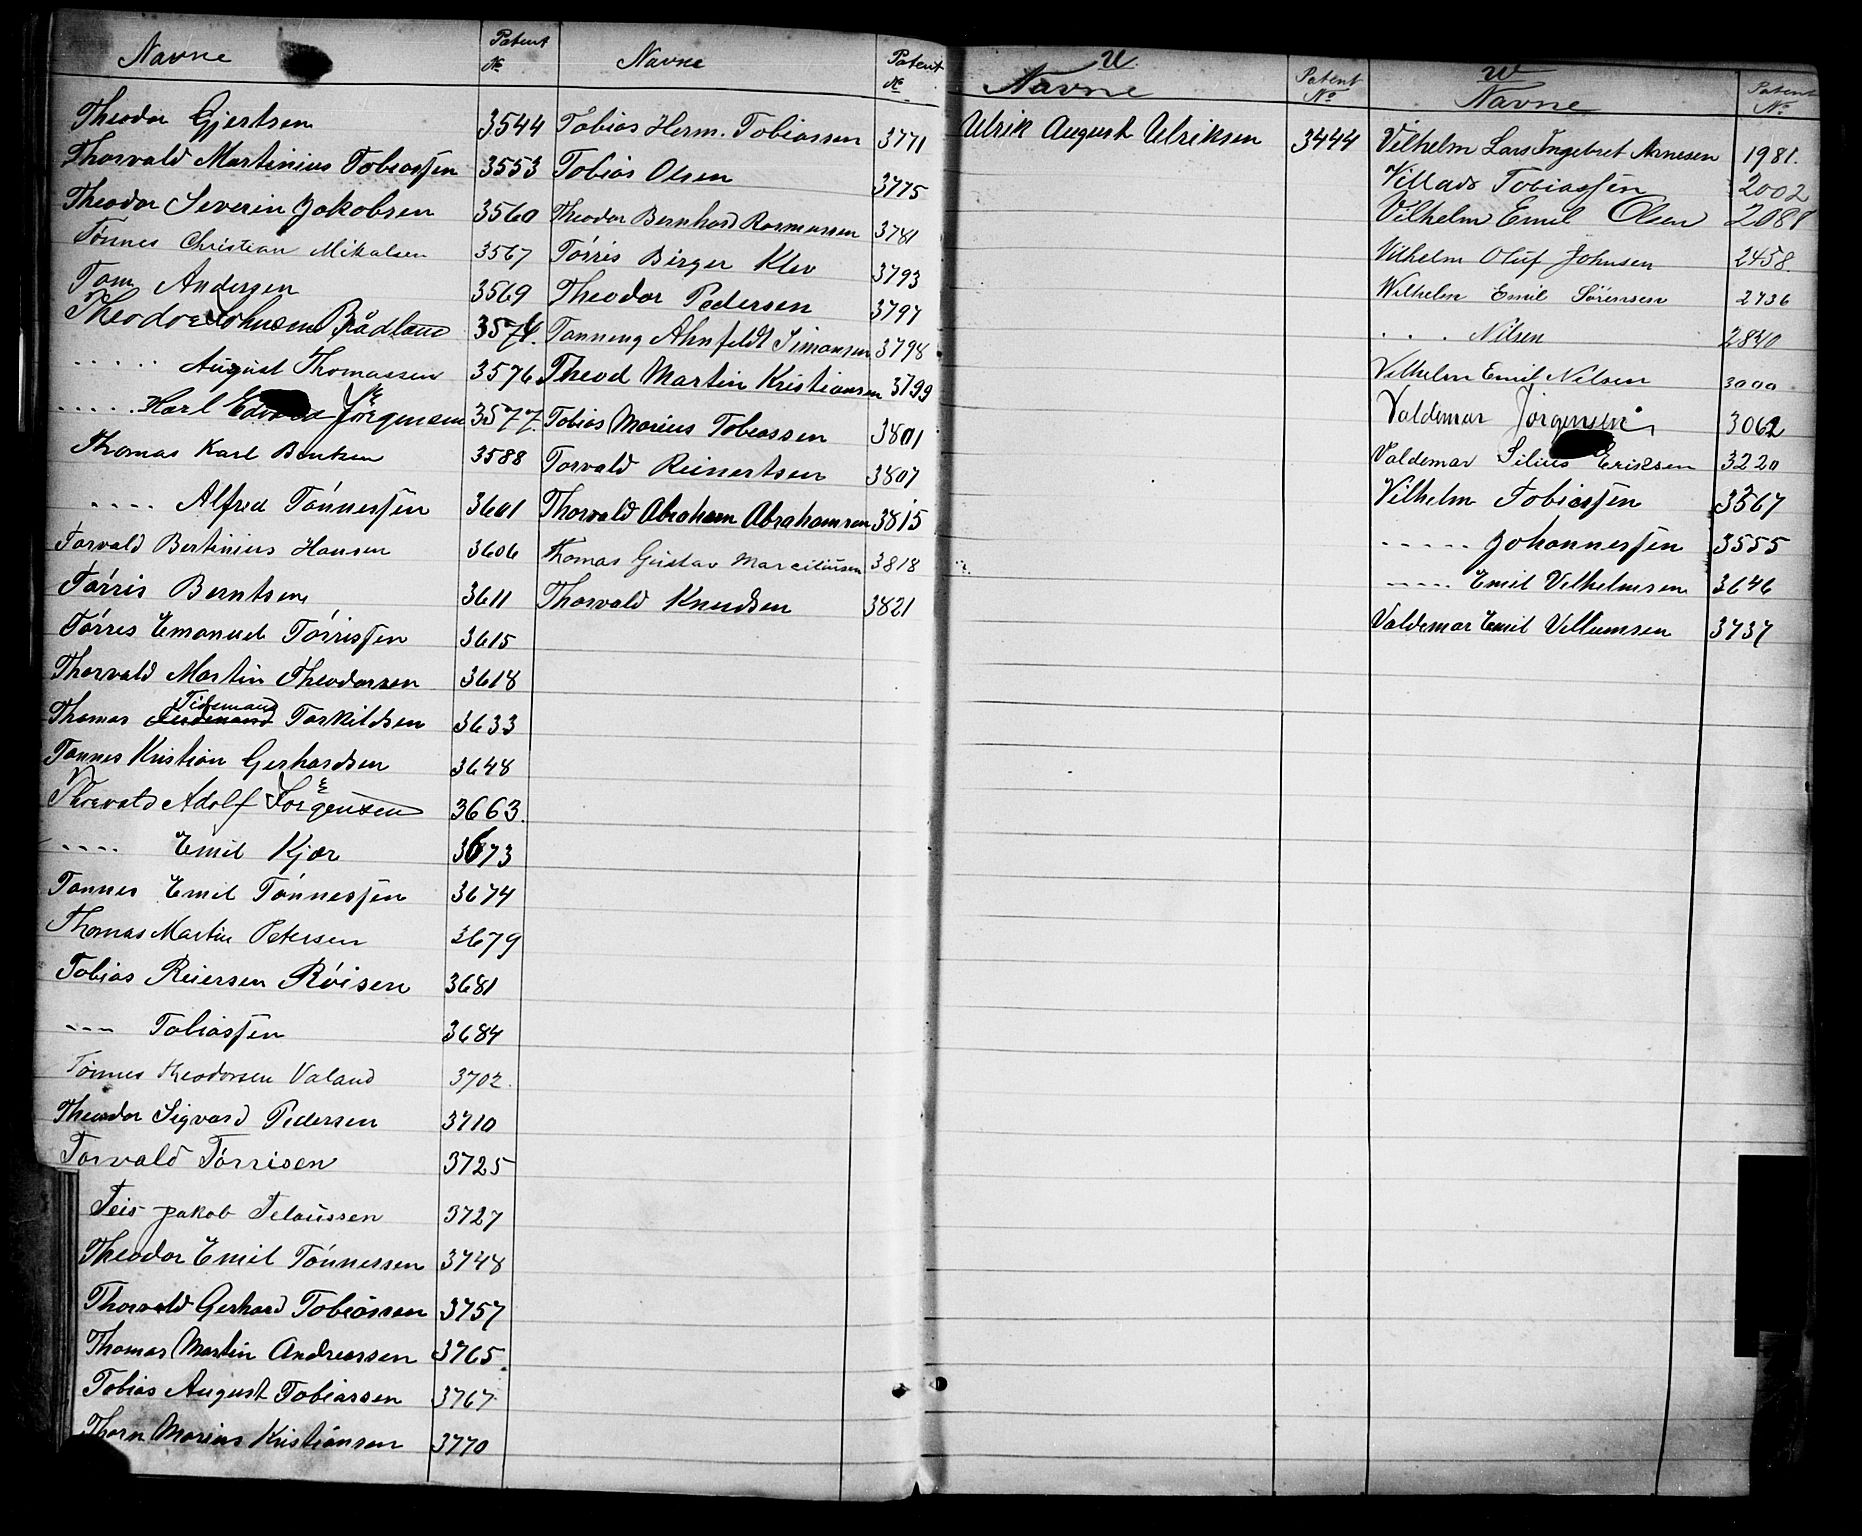 Navne Patent №
Theodor Gjertsen 3544
Thorvald Martinius Tobiassen 3553
Theodor Severin Jakobsen 3560
Tönnes Christian Mikalsen 3567
Tom Andersen 3569
Theodor Johnsen Brådland 3574.
" August Thomassen 3576
" Karl Edvard Jörgensen 3577.
Thomas Karl Bentsen 3588
" Alfred Tönnessen 3601
Torvald Bertinius Hansen 3606
Tórris Berntsen 3611
Tórres Emanuel Tórrissen 3615
Thorvald Martin Theodorsen 3618
Tidemand
Thomas Ferdinand Torkildsen 3633
Tønnes Kristian Gerhardsen 3648
Thorvald Adolf Jörgensen 3663.
" Emil Kjær 3673
Tønnes Emil Tónnessen 3674
Thomas Martin Petersen 3679
Tobias Reiersen Róisen 3681
" Tobiassen 3684
Tönnes Theodorsen Valand 3702.
Theodor Sigvard Pedersen 3710
Torvald Tórrisen 3725
Teis Jakob Telaussen 3727
Theodor Emil Tónnessen 3748
Thorvald Gerhard Tobiassen 3757
Thomas Martin Andreassen 3765.
Tobias August Tobiassen 3767
Thorn Marius Kristiansen 3770
Navne Patent №
Tobias Herm. Tobiassen 3771
Tobias Olsen 3775
Theodor Bernhard Rasmussen 3781
Tórris Birger Klev 3793
Theodor Pedersen 3797
Tønning Ahnfeldt Simonsen 3798
Theod Martin Kristiansen 3799
Tobias Marius Tobiassen 3801
Torvald Reinertsen 3807
Thorvald Abraham Abrahamsen 3815
Thomas Gustav Marciliusen 3818
Thorvald Knudsen 3821
U.
Navne Patent №
Ulrik August Ulriksen 3444
W
Navne Patent №
Vilhelm Lars Ingebret Arnesen 1981.
Villads Tobiassen 2002
Vilhelm Emil Olsen 2088
Vilhelm Oluf Johnsen 2458.
Wilhelm Emil Sörensen 2736
" Nilsen 2840
Vilhelm Emil Nilsen 3000
Valdemar Jörgensen 3062
Valdemar Silius Eriksen 3220
Vilhelm Tobiassen 3567
" Johannessen 3555
" Emil Vilhelmsen 3646
Valdemar Emil Villumsen 3737